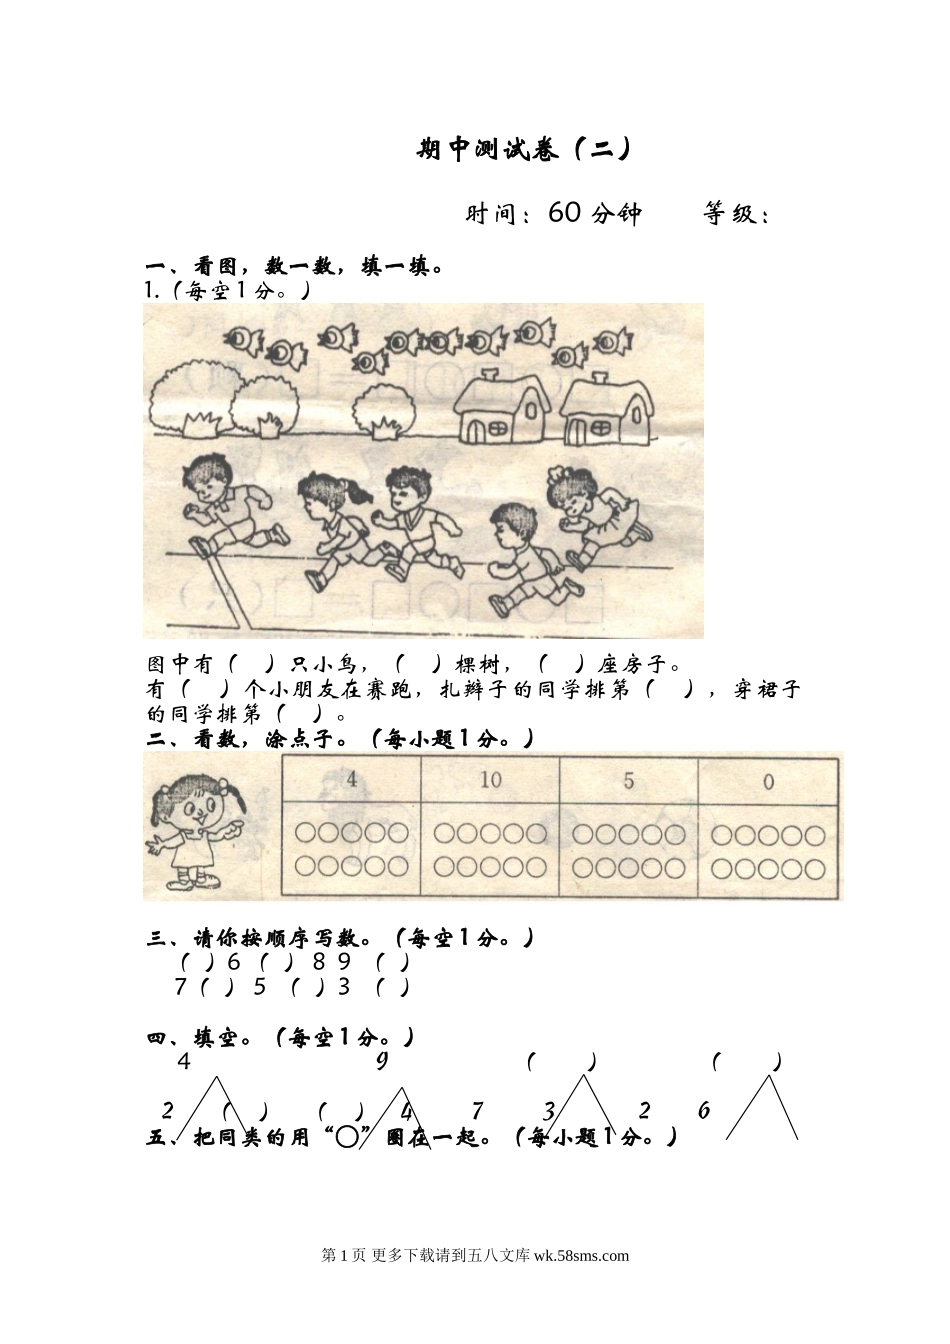 期中测试卷（二）
时间：60 分钟 等级：
一、看图，数一数，填一填。
1.（每空 1 分。）
图中有（ ）只小鸟，（ ）棵树，（ ）座房子。
有（ ）个小朋友在赛跑，扎辫子的同学排第（ ），穿裙子
的同学排第（ ）。
二、看数，涂点子。（每小题 1 分。）
4 10 5 0
三、请你按顺序写数。（每空 1 分。）
（ ）6（ ）8 9 （ ）
7（ ）5 （ ）3 （ ）
四、填空。（每空 1 分。）
4 9 （ ） （ ）
2 （ ） （ ） 4 7 3 2 6
五、把同类的用“○”圈在一起。（每小题 1 分。）
第 1 页 更多下载请到五八文库 wk.58sms.com